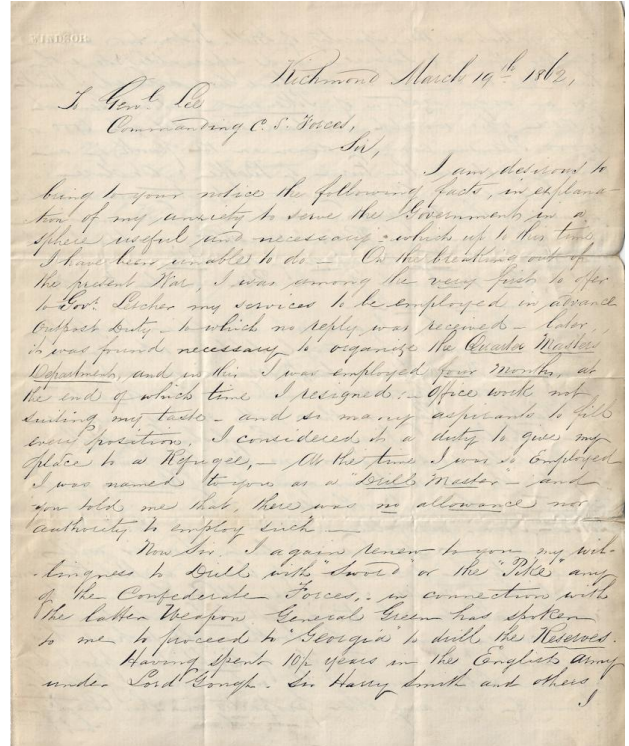 WINDSOR
Richmond March 19th 1862,
To Genl. Lee
Commanding C. S. Forces,
Sir,
I am desirous to
bring to your notice the following facts, in explana-
tion of my anxiety to serve the Government in a
sphere useful and necessary: which up to this time
I have been unable to do — On the breaking out of
the present War, I was among the very first to offer
to Govr. Letcher my services to be employed in advance
Outpost Duty — to which no reply was received — later,
it was found necessary to organize the Quarter Masters
Department, and in this I was employed four months, at
the end of which time I resigned: — Office work not
suiting my taste — and so many aspirants to fill
such position, I considered it a duty to give my
place to a Refugee, — At the time I was so Employed
I was named to you as a "Drill Master" — and
you told me that, there was no allowance nor
authority to employ such —
Now Sir, I again renew to you my wil-
-lingness to Drill with "Sword" or the "Pike" any
of the Confederate Forces, - in connection with
the latter Weapon General Green has spoken
to me to proceed to "Georgia" to drill the Reserves.
Having spent 10½ years in the English Army
under Lord Gough - Sir Harry Smith and others
I